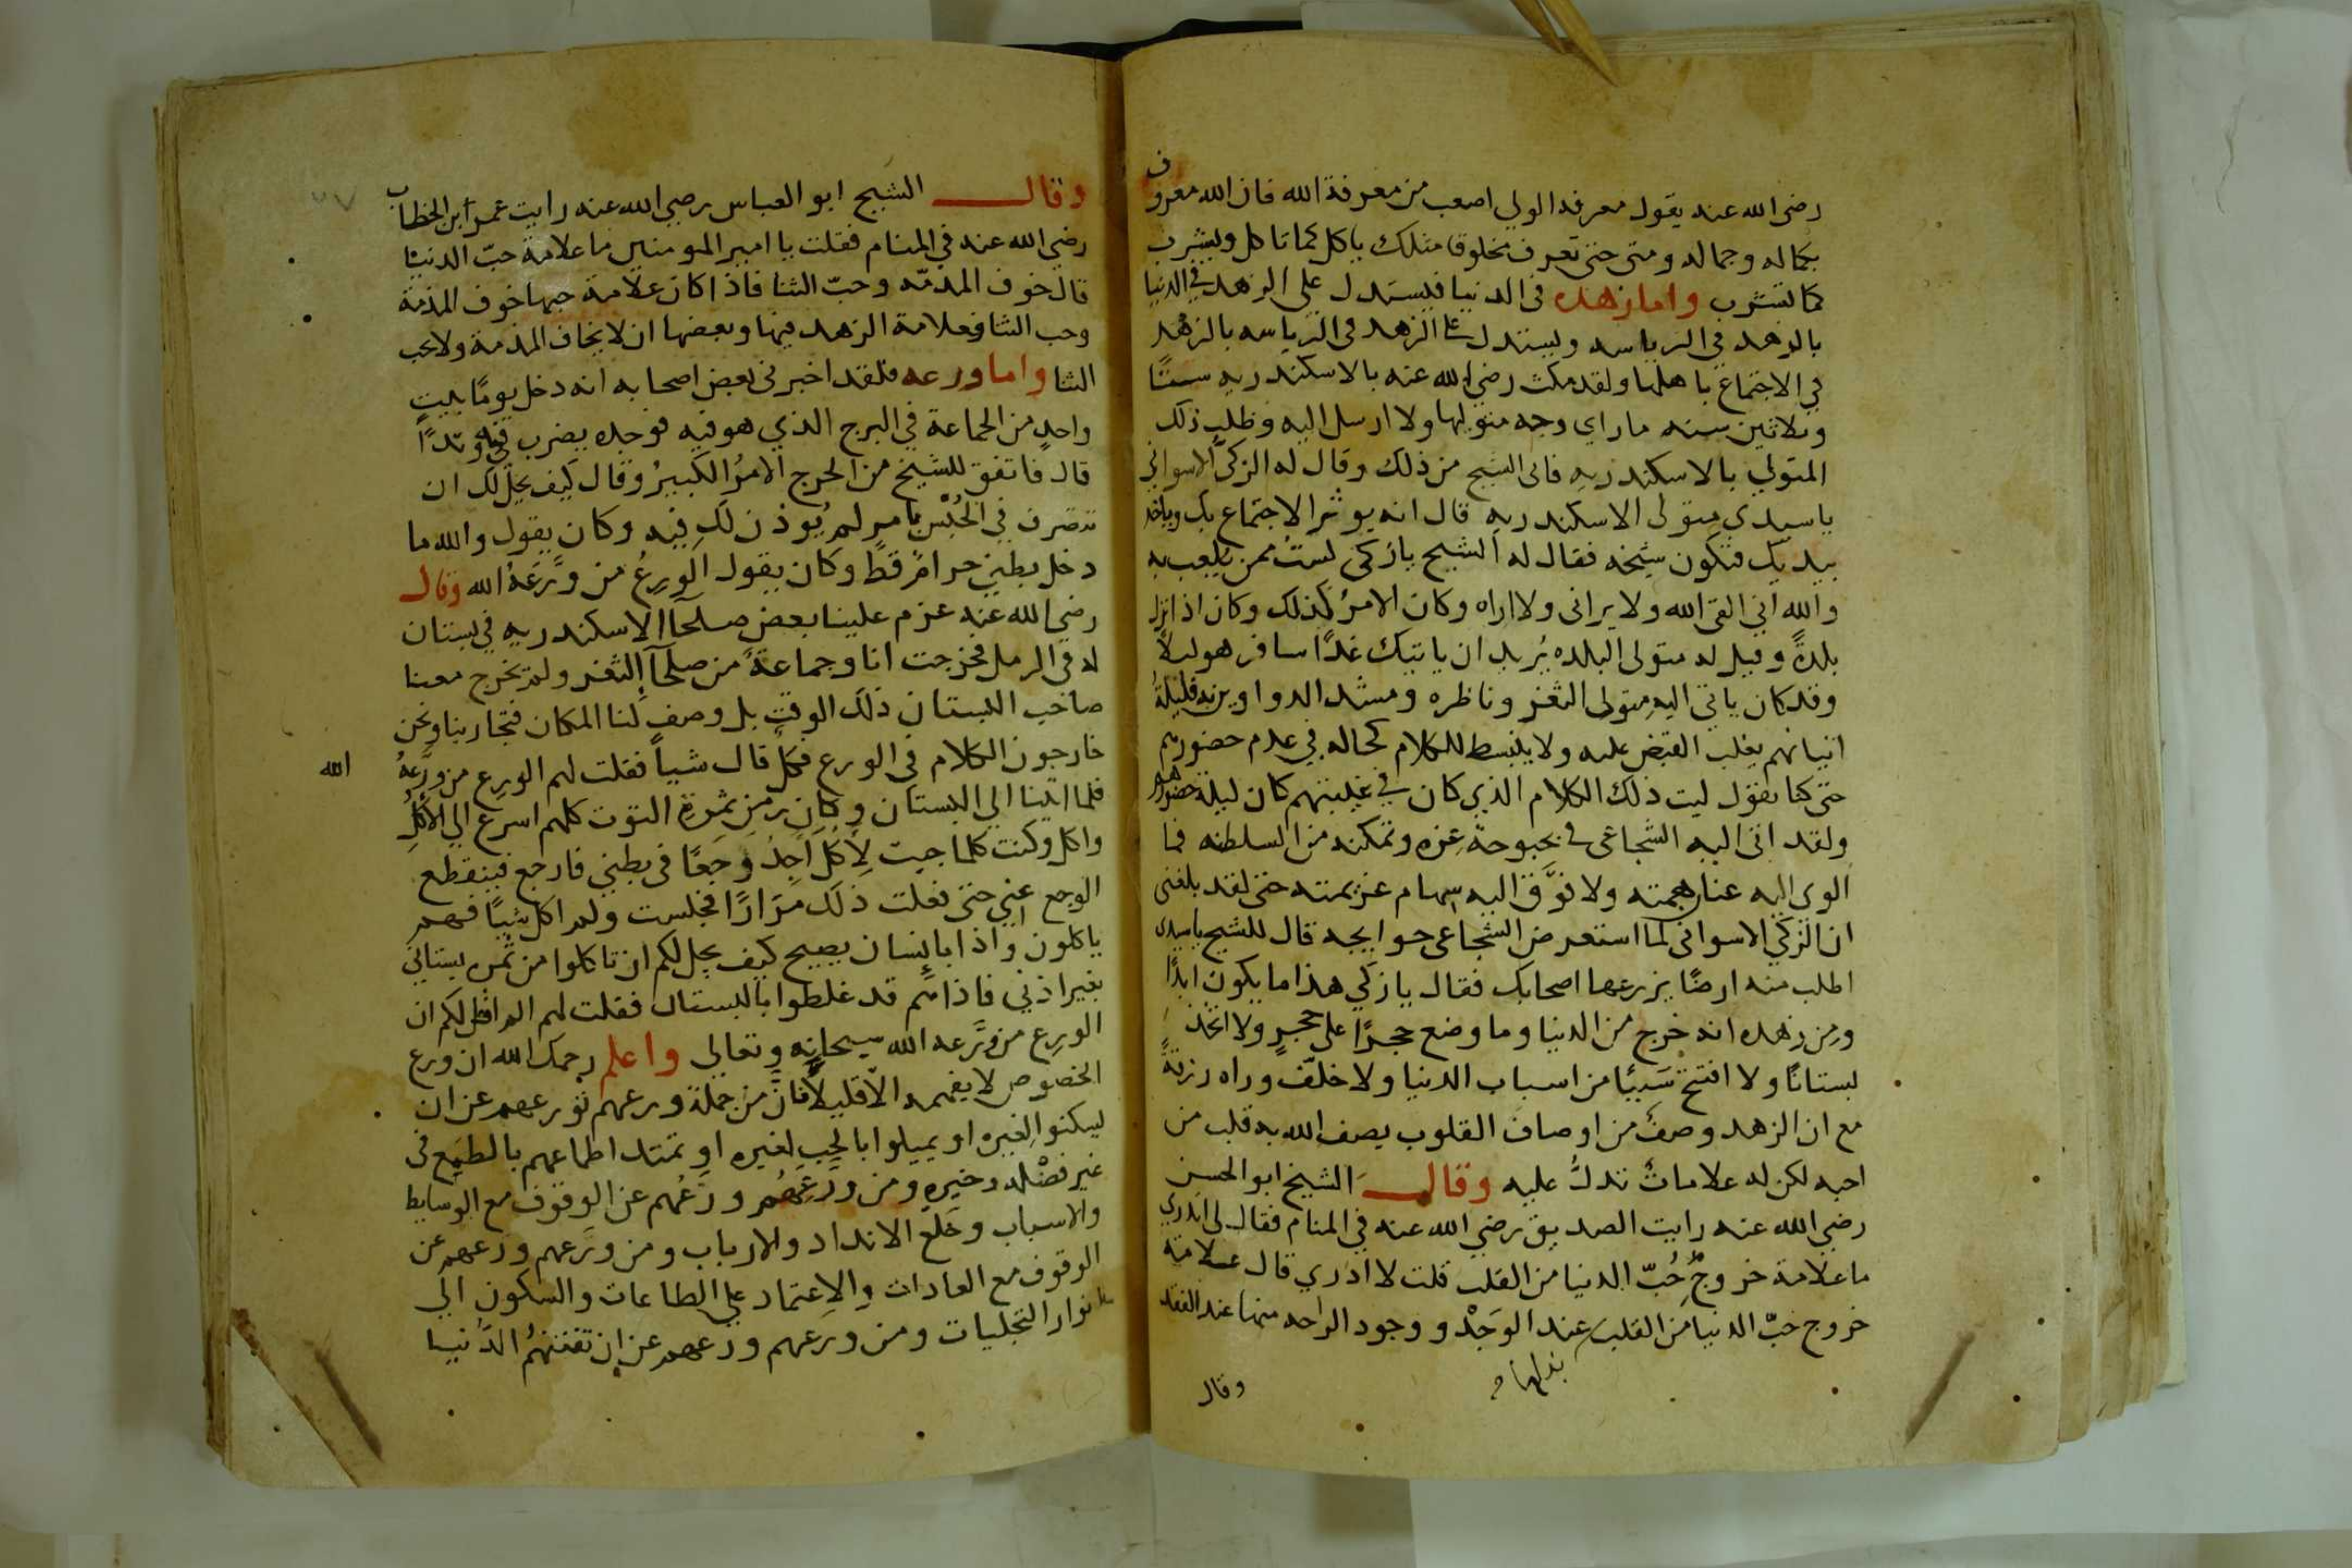 رضي الله عنه يقول معرفة الولي اصعب من معرفة الله فان الله معروف
بكماله وجماله ومتى حتى تعرف مخلوقا مثلك ياكل كما تاكل ويشرب
كما تشرب واما زهده في الدنيا فليستدل علي الزهد في الدنيا
بالزهد في الرياسه ويستدل على الزهد في الرياسه بالزهد
في الاجتماع باهلها ولقد مكث رضي الله عنه بالاسكندريه ستًا
وثلاثين سنه ماراي وجه متوليها ولا ارسل اليه وطلب ذلك
المتولي بالاسكندريه فابى الشيخ من ذلك وقال له الزكي الاسواني
يا سيدي متولى الاسكندريه قال انه يوثر الاجتماع بك وياخذ
بيديك فتكون شيخه فقال له الشيخ يازكى لستُ ممن يلعب به
والله اني القى الله ولا يراني ولا اراه وكان الامرُ كذلك وكان اذا نزل
بلدةً وقيل له متولى البلده يُريد ان ياتيك غدًا سافر هو ليلا
وقد كان ياتي اليهِ متولى الثغر وناظره ومشد الدواوين به فليلةُ
اتيانهم يغلب القبض عليه ولا ينبسط للكلام كحاله في عدم حضورهم
حتى كنا نقول ليت ذلك الكلام الذي كان في غيبتهم كان ليلة حضورهم
ولقد اتى اليه الشجاعى في بحبوحة عِزه وتمكنه من السلطنه فما
الوى اليه عنان همته ولا فوَّق اليه سهام عزيمته حتى لقد بلغنى
ان الزكي الاسوانى لما استعرض الشجاعى حوايجه قال للشيخ ياسيدى
اطلب منه ارضًا يزرعها اصحابك فقال يا زكي هذا ما يكون ابدًا
ومِن زهده انه خرج من الدنيا وما وضع حجرًا على حجرٍ ولا اتخذ
بستانًا ولا افتتح سَببًا من اسباب الدنيا ولا خلّف وراه رزقةً
مع ان الزهد وصفٌ من اوصاف القلوب يصف الله به قلب من
احبه لكن له علاماتٌ تدلُّ عليه وقال الشيخ ابو الحسن
رضي الله عنه رايت الصديق رضي الله عنه في المنام فقال لى اتدري
ما علامة خروج حُبّ الدنيا من القلب قلت لا ادري قال علامة
خروج حبّ الدنيا من القلب بذلها عند الوَجْد ووجود الراحه منها عند الفقد
وقال
وقال الشيخ ابو العباس رضي الله عنه رايت عمر ابن الخطاب
رضي الله عنه في المنام فقلت يا امير المومنين ما علامة حبّ الدنيا
قال خوف المذمّه وحبّ الثنا فاذا كان علامة حبها خوف المذمة
وحب الثنا فعلامة الزهد فيها وبعضها ان لا يخاف المذمة ولا يحب
الثنا واما ورعه فلقد اخبرنى بعض اصحابه انه دخل يومًا بيت
واحدٍ من الجماعة في البرج الذي هو فيه فوجده يضرب فيه وتدًا
قال فاتفق للشيخ من الحرج الامرُ الكبيرُ وقال كيف يحل لك ان
تتصرف في الحُبْس بامرٍ لم يُوذن لك فيه وكان يقول والله ما
دخل بطني حرامٌ قطّ وكان يقول الورعُ من ورَّعَهُ الله وقال
رضي الله عنه عزم علينا بعض صلحآ الاسكندريه في بستان
له في الرمل فخرجت انا وجماعةٌ من صلحآ الثغر ولم يخرج معنا
صاحب البستان ذلك الوقت بل وصف لنا المكان فتجارينا ونحن
خارجون الكلام في الورع فكلٌ قال شياً فقلت لهم الورع من ورَّعهُ الله
فلما اتينا الي البستان وكان زمن ثمرةِ التوت كلهم اسرع الي الاكلِ
واكل وكنت كلما جيت لأكل اجد وجَعًا في بطني فارجع فينقطع
الوجع عني حتى فعلت ذلك مرَارًا فجلست ولم اكل شيًا فهم
ياكلون واذا بانسان يصيح كيف يحل لكم ان تاكلوا من ثمره بستاني
بغير اذني فاذا هم قد غلطوا بالبستان فقلت لهم الم اقل لكم ان
الورع من ورَّعه الله سبحانه وتعالى واعلم رحمك الله ان ورع
الخصوص لا يفهمه الا قليلا فانَّ من جملة ورعهم تورعهم عن ان
يسكنوا لغيره او يميلوا بالحب لغيره او تمتد اطماعهم بالطمع في
غير فضْله وخيرهِ ومن ورَعِهم ورَعُهم عن الوقوف مع الوسايط
والاسباب وخَلع الانداد والارباب ومن ورَعهم ورَعهم عن
الوقوف مع العادات والاعتماد علي الطاعات والسكون الي
انوار التجليات ومن ورَعهم ورعهم عن ان تفتنهُم الدُنيا